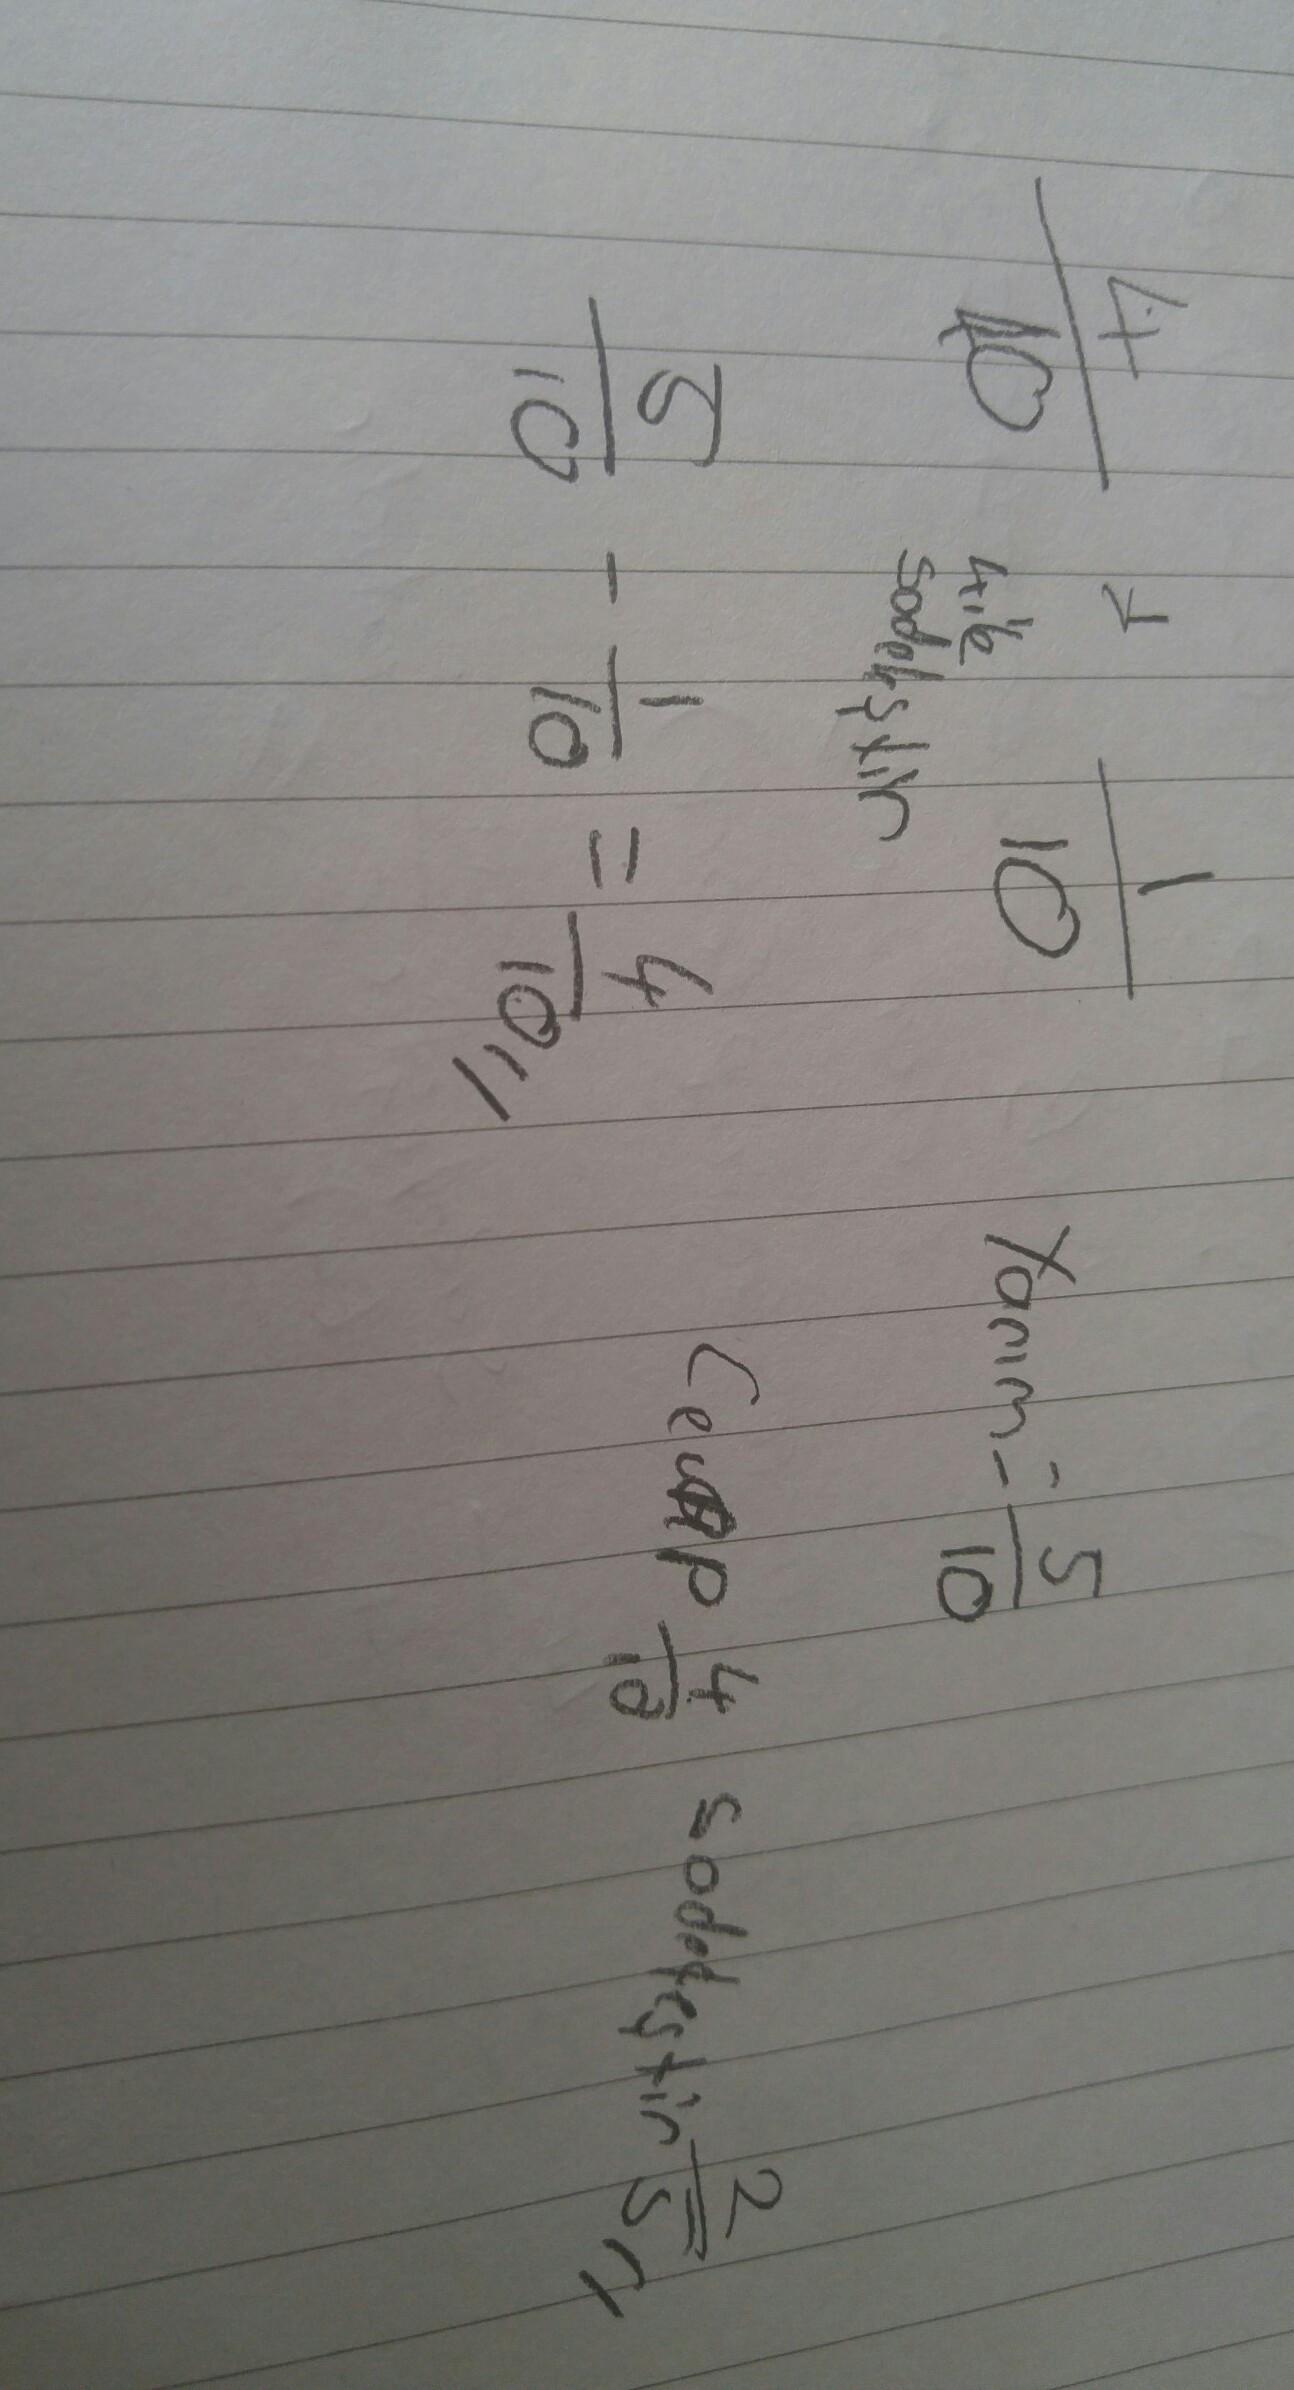 4/10 1/10 Yarım = 5/10
4 ile
sadeleştir
5/10 - 1/10 = 4/10 // Cevap 4/10 sadeleştir 2/5 //